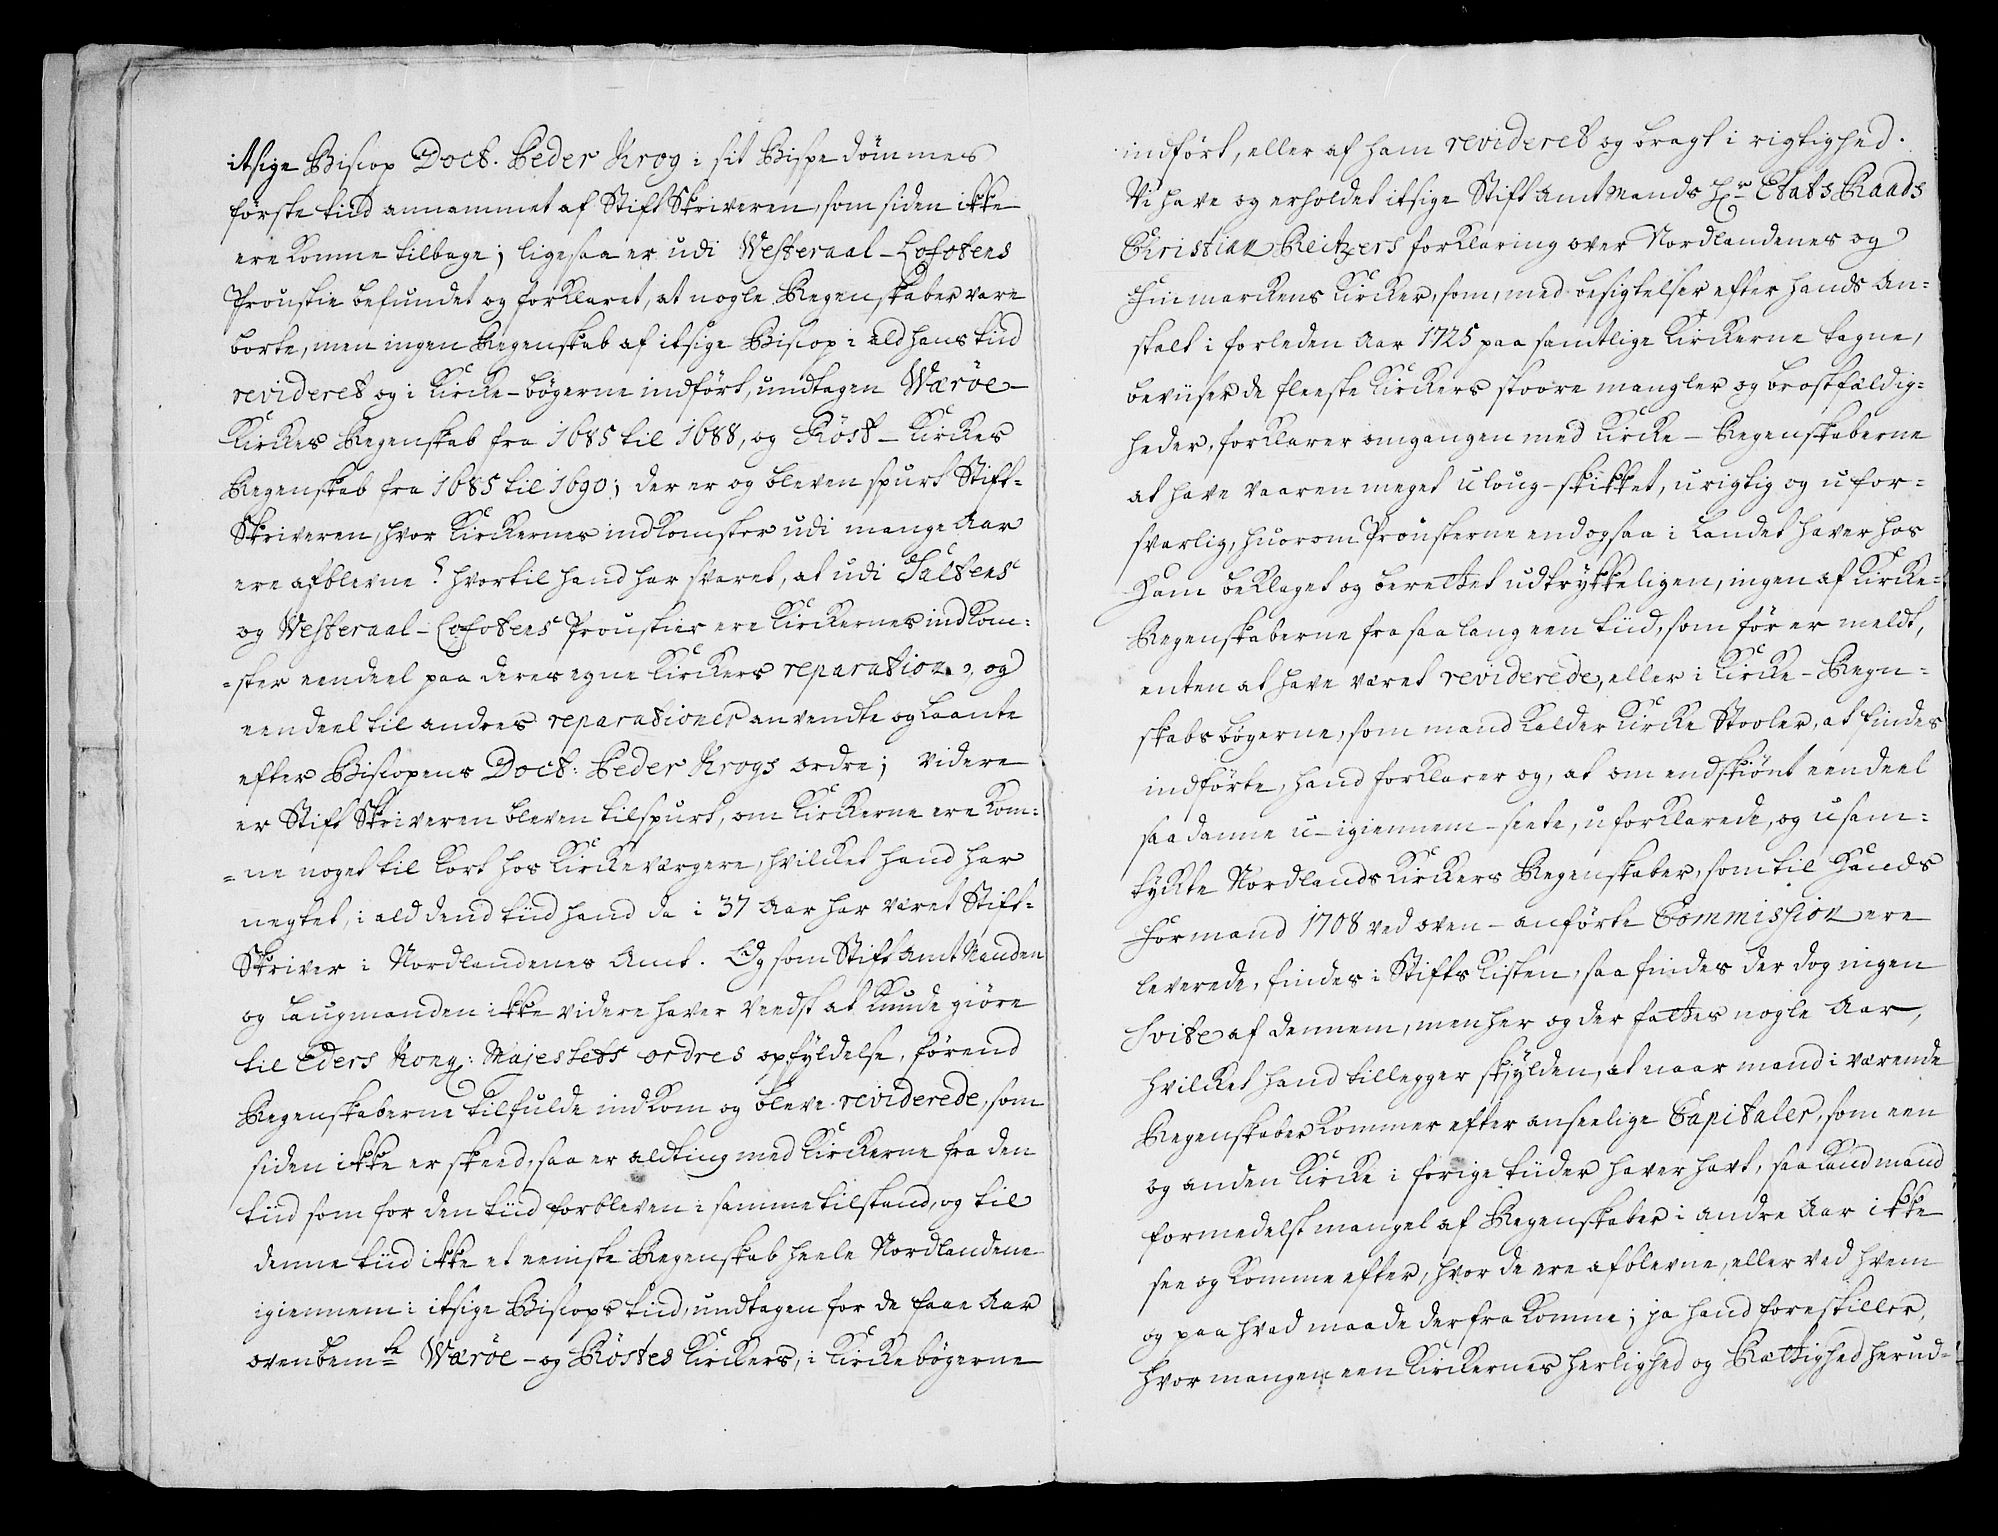 itzige Biscop Doct. Peder Krog i sit Bispedømmes
første tiid annammet af Stift Skriveren, som siden ikke
ere komne tilbage; ligesaa er udi Westeraal-Lofotens
Proustie befundet og forklaret, at nogle Regenskaber vare
borte, men ingen Regenskab af itzige Biscop i ald hans tiid
revideret og i Kircke-bøgerne indført, undtagen Wærøe-
Kirckes Regenskab fra 1685 til 1688, og Røst-Kirckes
Regenskab fra 1685 til 1690; der er og bleven spurt Stift-
Skriveren, hvor Kirckernes indkomster udi mange Aar
ere afblevne? hvortil hand har svaret, at udi Saltens
og Westeraal-Lofotens Proustier ere Kirckernes indkom-
-ster eendeel paa deres egne Kirckers reparation, og
eendeel til andres reparationer anvendte og laante
efter Biscopens Doct: Peder Krogs ordre; videre
er Stift Skriveren bleven tilspurt, om Kirckerne ere kom-
-ne noget til kort hos Kirckeværgere, hvilcket hand har
negtet, i ald dend tiid hand da i 37 Aar har været Stift-
Skriver i Nordlandenes Amt. Og som Stift Amt Manden
og Laugmanden ikke videre haver veedst at kunde giøre
til Eders Kong: Majestets ordres opfyldelse, førend
Regenskaberne tilfulde indkom og bleve reviderede, som
siden ikke er skeed, saa er alting med Kirckerne fra den
tiid som for den tiid forbleven i samme tilstand, og til
denne tiid ikke et eeniste Regenskab heele Nordlandene
igiennem i itzige Biscops tiid, undtagen for de faae Aar
ovenbemte Wærøe- og Røstes Kirckers, i Kircke bøgerne
indført, eller af ham revideret og bragt i rigtighed.
Vi have og erholdet itzige Stift Amtmands Hr. Etats Raads
Christian Reitzers forklaring over Nordlandenes og
Finmarckens Kircker, som, med besigtelser efter hands An-
stalt i forleden Aar 1725 paa samtlige Kirckerne tagne,
beviiser de fleeste Kirckers stoore mangler og brostfældig-
heder, forklarer omgangen med Kircke-Regenskaberne
at have vaaren meget uloug-skikket, urigtig og ufor-
svarlig, huorom Prousterne endogsaa i Landet haver hos
ham beklaget og berettet udtrykkeligen, ingen af Kircke-
Regenskaberne fra saa lang een tiid, som før er meldt,
enten at have været reviderede, eller i Kircke-Regn-
skabs bøgerne, som mand kalder Kircke Stooler, at findes
indførte, hand forklarer og, at om endskiønt eendeel
saadanne u-igiennem-seete, uforklarede, og usam-
tyckte Nordlands Kirckers Regenskaber, som til hands
Formand 1708 ved oven-anførte Commission ere
leverede, findes i Stifts Kisten, saa findes der dog ingen
Svite af dennem, men her og der fattes nogle Aar,
hvilcket hand tillegger skylden, at naar mand i værende
Regenskaber kommer efter anseelige Capitaler, som een
og anden Kircke i forige tiider haver havt, saa kand mand
formedelst mangel af Regenskaber i andre Aar ikke
see og komme efter, hvor de ere afblevne, eller ved hvem
og paa hvad maade derfra komne; ja hand forestiller,
hvor mangen een Kirckernes herlighed og Rettighed herud-